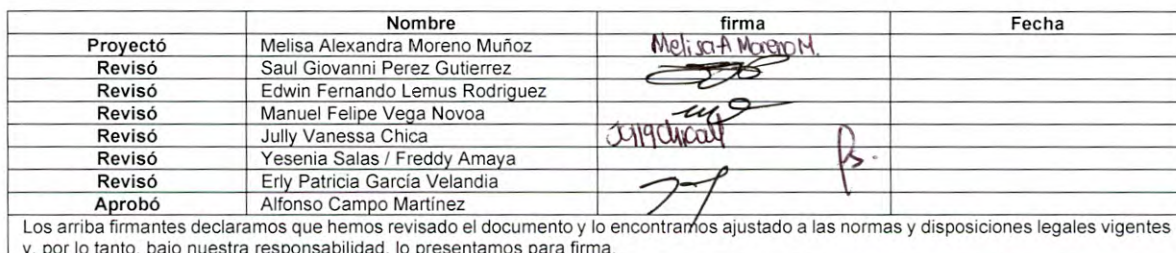 Nombre firma Fecha
Proyectó Melisa Alexandra Moreno Muñoz Melisa A Moreno M.
Revisó Saul Giovanni Perez Gutierrez
Revisó Edwin Fernando Lemus Rodriguez
Revisó Manuel Felipe Vega Novoa
Revisó Jully Vanessa Chica
Revisó Yesenia Salas / Freddy Amaya
Revisó Erly Patricia García Velandia
Aprobó Alfonso Campo Martínez
Los arriba firmantes declaramos que hemos revisado el documento y lo encontramos ajustado a las normas y disposiciones legales vigentes
y, por lo tanto, bajo nuestra responsabilidad, lo presentamos para firma.